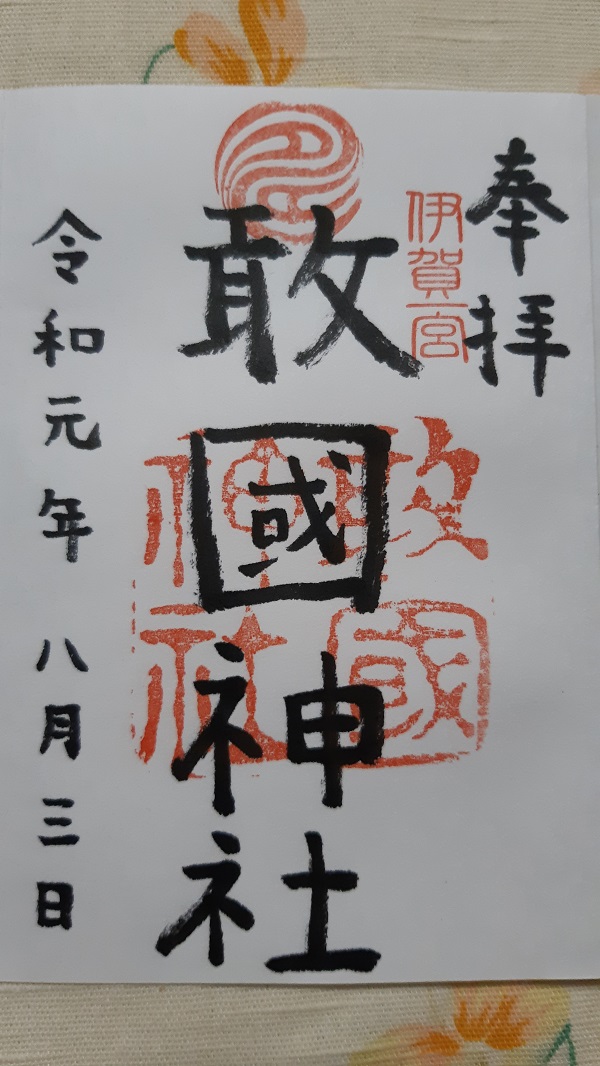 奉拝
伊賀一宮
敢國神社
敢國神社
令和元年 八月三日